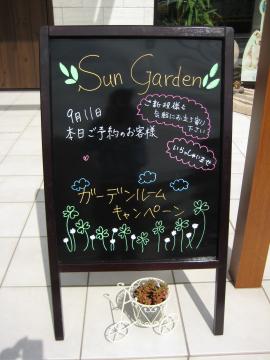 Sun Garden
9月11日
本日ご予約のお客様
ご新規様も
気軽にお立ち寄り
下さい
いらっしゃいませ
ガーデンルーム
キャンペーン